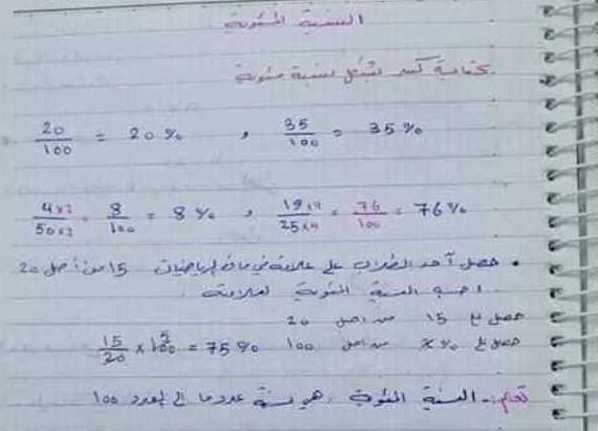 النسبة المئوية
كتابة كسر بشكل نسبة مئوية
20/100 = 20% , 35/100 = 35%
4×2/50×2 = 8/100 = 8% , 19×4/25×4 = 76/100 = 76%
• حصل أحد الطلاب على علامة في مادة الرياضيات 15 من أصل 20
احسب النسبة المئوية لعلامته
حصل على 15 من اصل 20
حصل على x% من اصل 100 15/20 × 100 5 = 75%
تعلم :- النسبة المئوية هي نسبة عدد ما إلى العدد 100